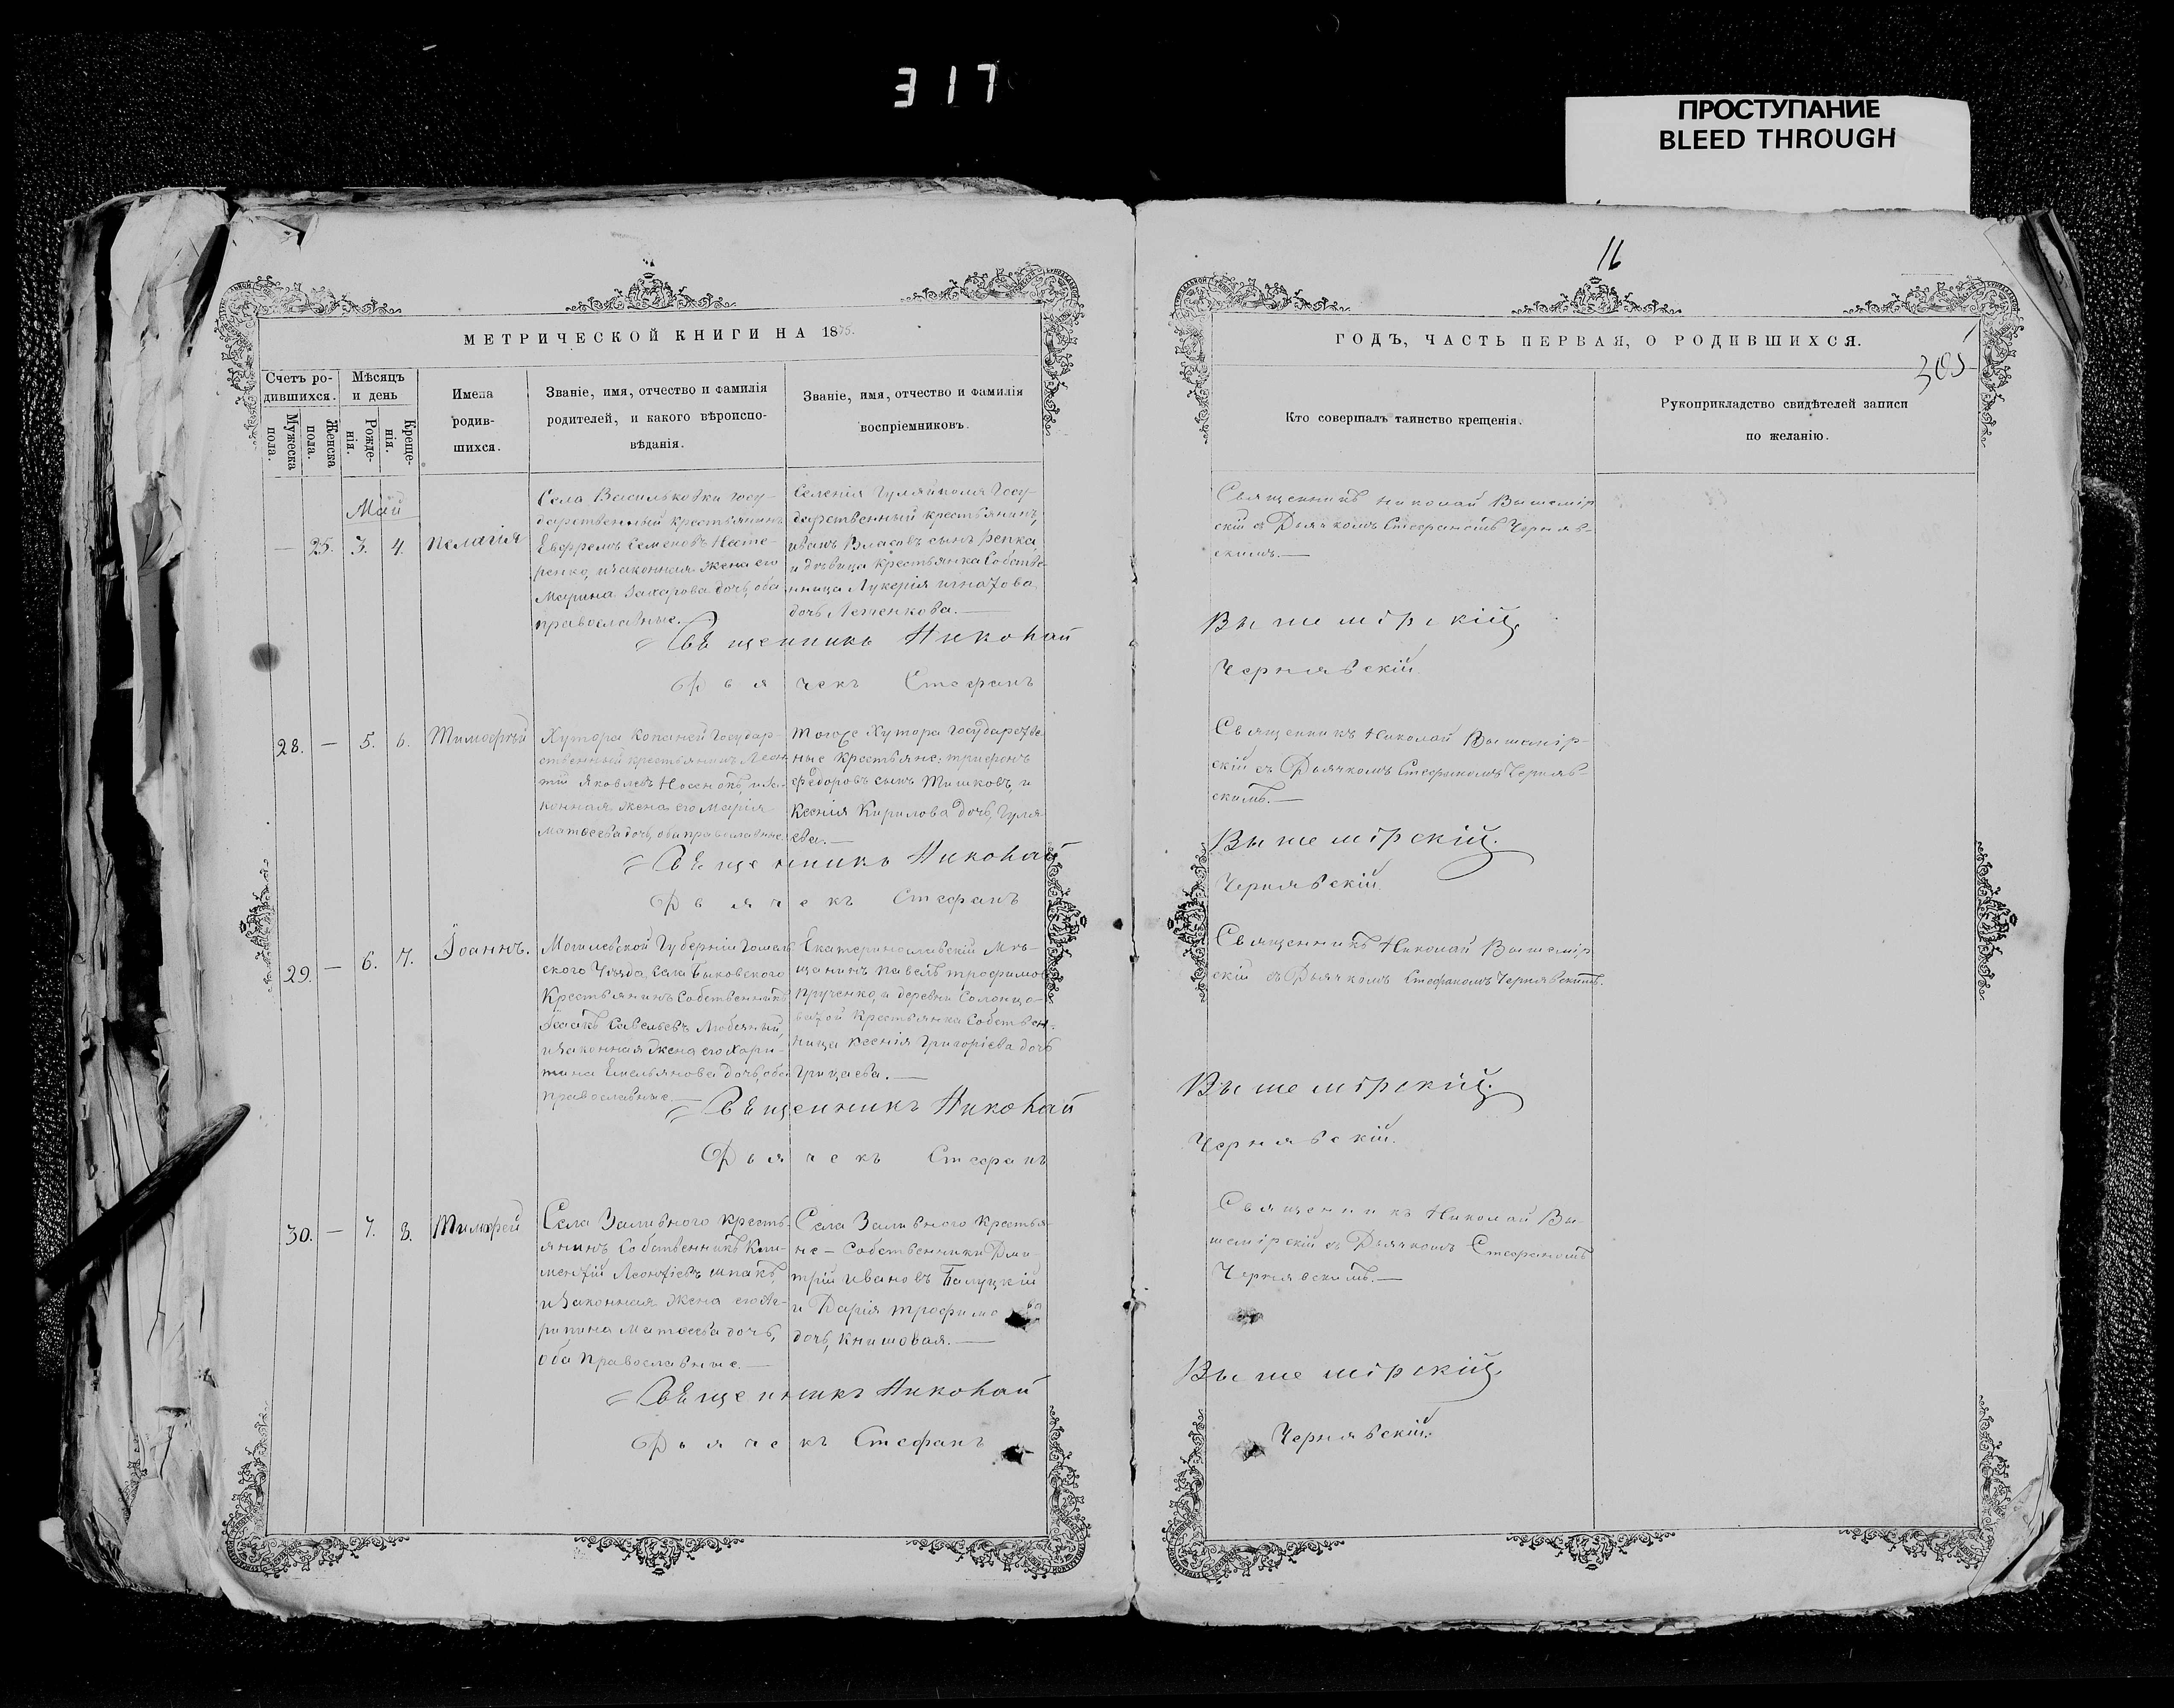 317
ПРОСТУПАНИЕ
BLEED THROUGH
МЕТРИЧЕСКОЙ КНИГИ НА 1875.
Счетъ ро-
дившихся.
Мужеска
пола.
Женска
пола.
Мѣсяцъ
и день
Рожде-
нія.
Креще-
нія.
Имена
родив-
шихся.
Званіе, имя, отчество и фамилія
родителей, и какого вѣроиспо-
вѣданія.
Званіе, имя, отчество и фамилія
воспріемниковъ.
Май
— 25. 3. 4. Пелагія
Села Васильковки госу-
дарственный крестьянинъ
Евфремъ Семеновъ Несте-
ренко, и законная жена его
Марина Захарова дочь, оба
православные.
Селенія Гуляйполя Госу-
дарственный крестьянинъ,
Иванъ Власовъ сынъ Репка,
и дѣвица крестьянка Собстве-
нница Лукерія Игнатова
дочь
Священникъ Николай
Дьячекъ Стефанъ
28. — 5. 6. Тимофей
Хутора Копаней Государ-
ственный крестьянинъ Леон-
тій Яковлевъ Носенокъ, и за-
конная жена его Марія
Матвеева дочь, оба православные.
Тогоже Хутора Государстве-
ные Крестьяне: Трифонъ
Федоровъ сынъ Тишковъ, и
Ксенія Кирилова дочь, Гуля-
ева.—
Священникъ Николай
Дьячекъ Стефанъ
29. — 6. 7. Іоаннъ.
Могилевской Губерніи Гомель-
ского Уѣзда, Села Быковского
Крестьянинъ Собственникъ
Ісаакъ Савельевъ
и законная жена его Хари-
тина Емельянова дочь, оба
православные.—
Екатеринославскій Мѣ-
щанинъ Павелъ Трофимов
Прученко, и деревни Солонцо-
ватой Крестьянка Собствен-
ница Ксенія Григоріева дочь
Грицаева.—
Священникъ Николай
Дьячекъ Стефанъ
30. — 7. 8. Тимофей
Села Заливного Кресть-
янинъ Собственникъ Кли-
ментій Леонтіевъ Шпакъ,
и законная жена его Аг-
рипина Матвеева дочь,
оба Православные.—
Села Заливного Крестья-
не — Собственники Дми-
трій Ивановъ Балуцкій
и Дарія Трофимова
дочь, Книшовая.—
Священникъ Николай
Дьячекъ Стефанъ
16
ГОДЪ, ЧАСТЬ ПЕРВАЯ, О РОДИВШИХСЯ.
305
Кто совершалъ таинство крещенія.
Рукоприкладство свидѣтелей записи
по желанію.
Священникъ Николай Вышемір
скій съ Дьячкомъ Стефаномъ Черняв-
скимъ.—
Вышемірскій.
Чернявскій
Священникъ Николай Вышемір-
скій съ Дьячкомъ Стефаномъ Черняв-
скимъ.—
Вышемірскій.
Чернявскій
Священникъ Николай Вышемір
скій съ Дьячкомъ Стефаномъ Чернявскимъ.
Вышемірскій.
Чернявскій.
Священникъ Николай Вы-
шемірскій съ Дьячкомъ Стефаномъ
Чернявскимъ.—
Вышемірскій
Чернявскій.